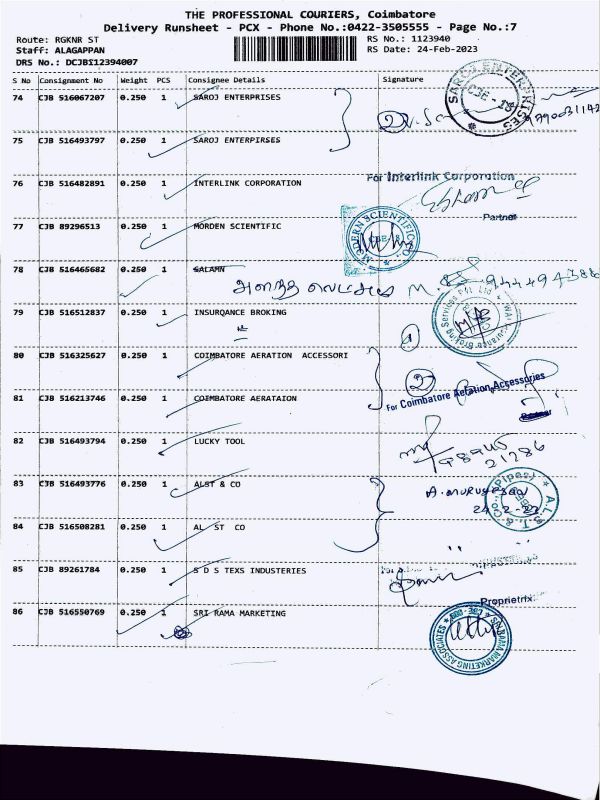 THE PROFESSIONAL COURIERS, Coimbatore
Delivery Runsheet - PCX - Phone No.:0422-3505555 - Page No.:7
Route: RGKNR ST
RS No.: 1123940
Staff: ALAGAPPAN
RS Date: 24-Feb-2023
DRS No.: DCJBS12394007
S No Consignment No Weight PCS Consignee Details Signature
74 CJB 516067207 0.250 1 SAROJ ENTERPRISES
SAROJ ENTERPRISES
75 CJB 516493797 0.250 1 SAROJ ENTERPIRSES
76 CJB 516482891 0.250 1 INTERLINK CORPORATION
For Interlink Corporation
Partner
77 CJB 89296513 0.250 1 MORDEN SCIENTIFIC
MODERN SCIENTIFIC CO.
78 CJB 516465682 0.250 1 SALAMN
79 CJB 516512837 0.250 1 INSURQANCE BROKING
Insurance Broking Services Pvt Ltd
80 CJB 516325627 0.250 1 COIMBATORE AERATION ACCESSORI
2
For Coimbatore Aeration Accessories
81 CJB 516213746 0.250 1 COIMBATORE AERATAION
82 CJB 516493794 0.250 1 LUCKY TOOL
83 CJB 516493776 0.250 1 ALST & CO
A. MURUGESAN
A.L.S.T. & Co., (Pipes)
84 CJB 516508281 0.250 1 AL ST CO
" "
85 CJB 89261784 0.250 1 S D S TEXS INDUSTERIES
Proprietrix
86 CJB 516550769 0.250 1 SRI RAMA MARKETING
SRI RAMA MARKETING ASSOCIATES